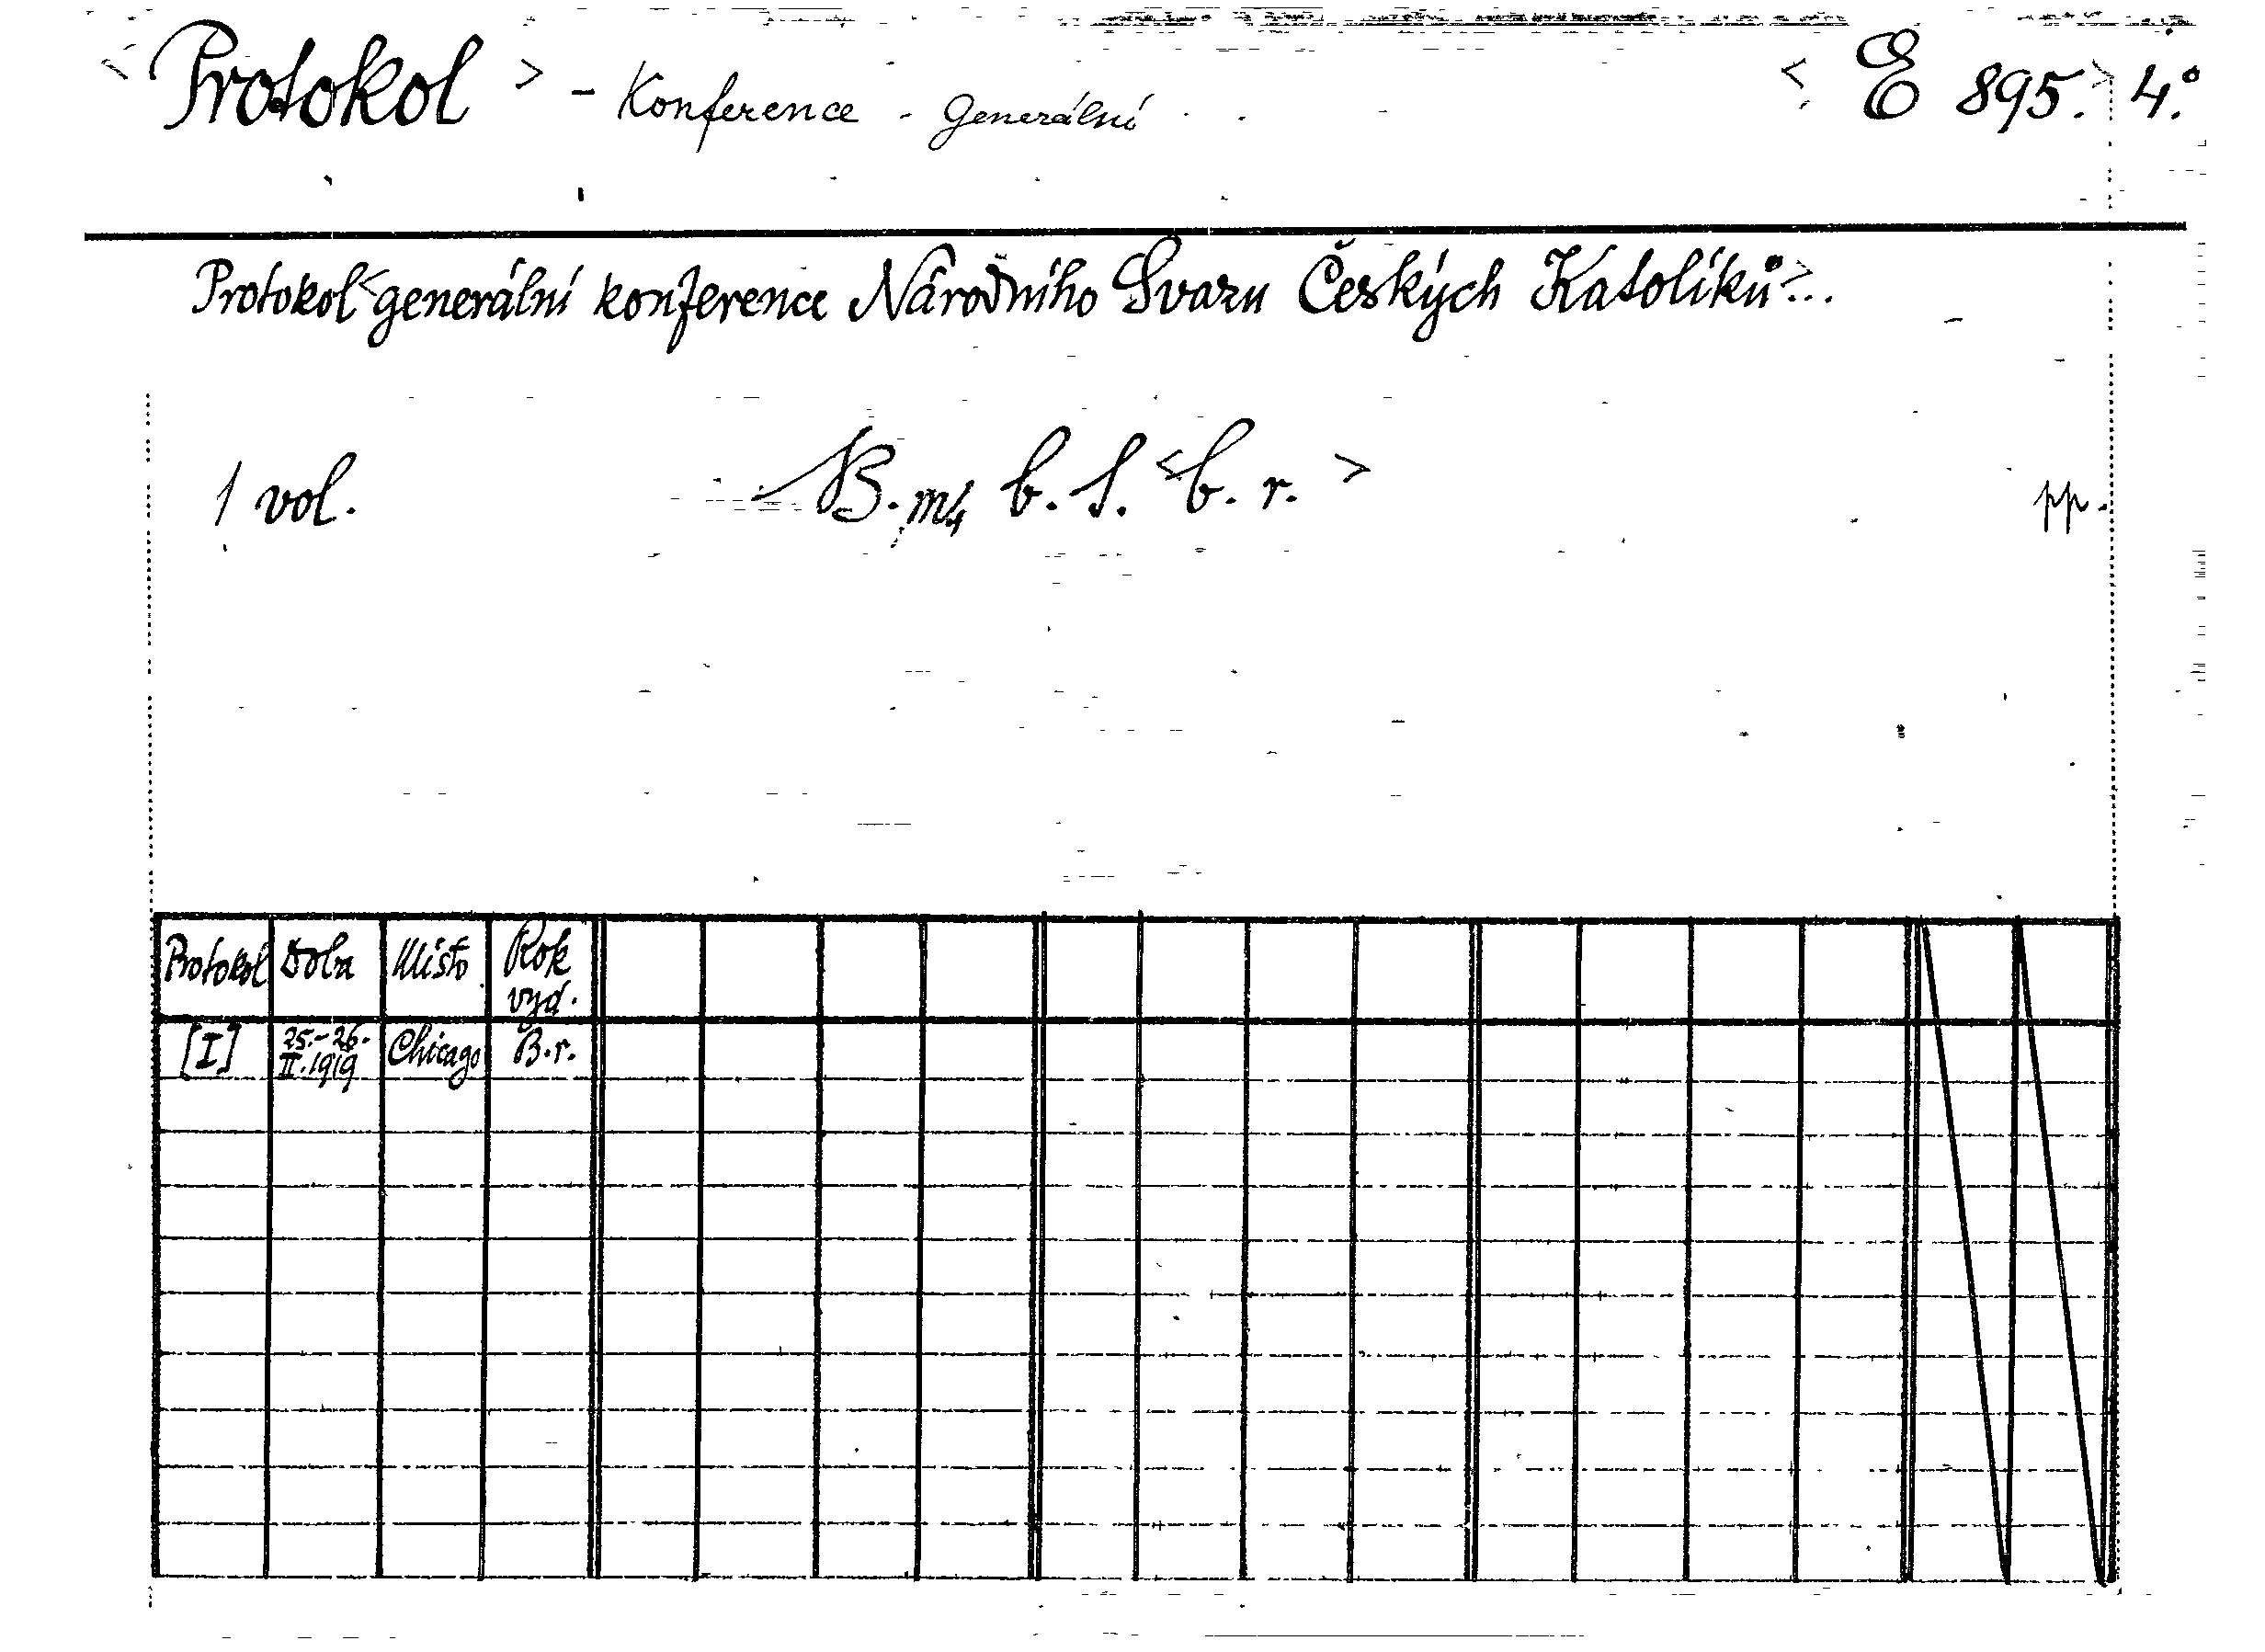 < Protokol > - Konference - Generální < E 895. > 4.°
Protokol <generální konference Národního Svazu Českých Katolíků> ...
1 vol. B. m. b. t. <b. r. > pp.
Protokol Doba Místo Rok vyd.
[I] 25.-26. II. 1919 Chicago B.r.